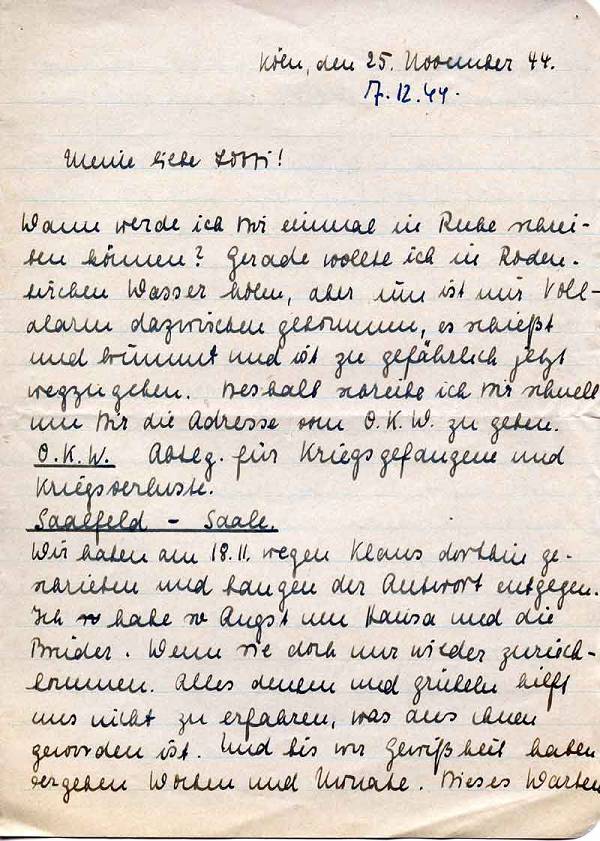 Köln, den 25. November 44.
7.12.44.
Meine liebe Lotti!
Wann werde ich Dir einmal in Ruhe schrei-
ben können? Gerade wollte ich in Roden-
kirchen Wasser holen, aber nun ist mir Voll-
alarm dazwischen gekommen, es schießt
und brummt und ist zu gefährlich jetzt
wegzugehen. Deshalb schreibe ich Dir schnell
um Dir die Adresse vom O.K.W. zu geben.
O.K.W. Abteg. für Kriegsgefangene und
Kriegsverluste.
Saalfeld - Saale.
Wir haben am 18.11. wegen Klaus dorthin ge-
schrieben und bangen der Antwort entgegen.
Ich habe so Angst um Hansa und die
Brüder. Wenn sie doch nur wieder zurück-
kommen. Alles denken und grübeln hilft
uns nicht zu erfahren, was aus ihnen
geworden ist. Und bis wir Gewißheit haben
vergehen Wochen und Monate. Dieses Warten